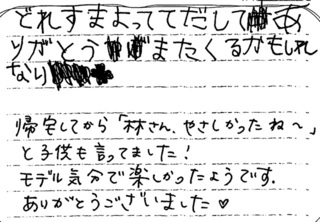 どれすまよってててだして あ
りがとう またくるかもしれ
ない
帰宅してから「林さん、やさしかったね〜」
と子供も言ってました!
モデル気分で楽しかったようです。
ありがとうございました♡